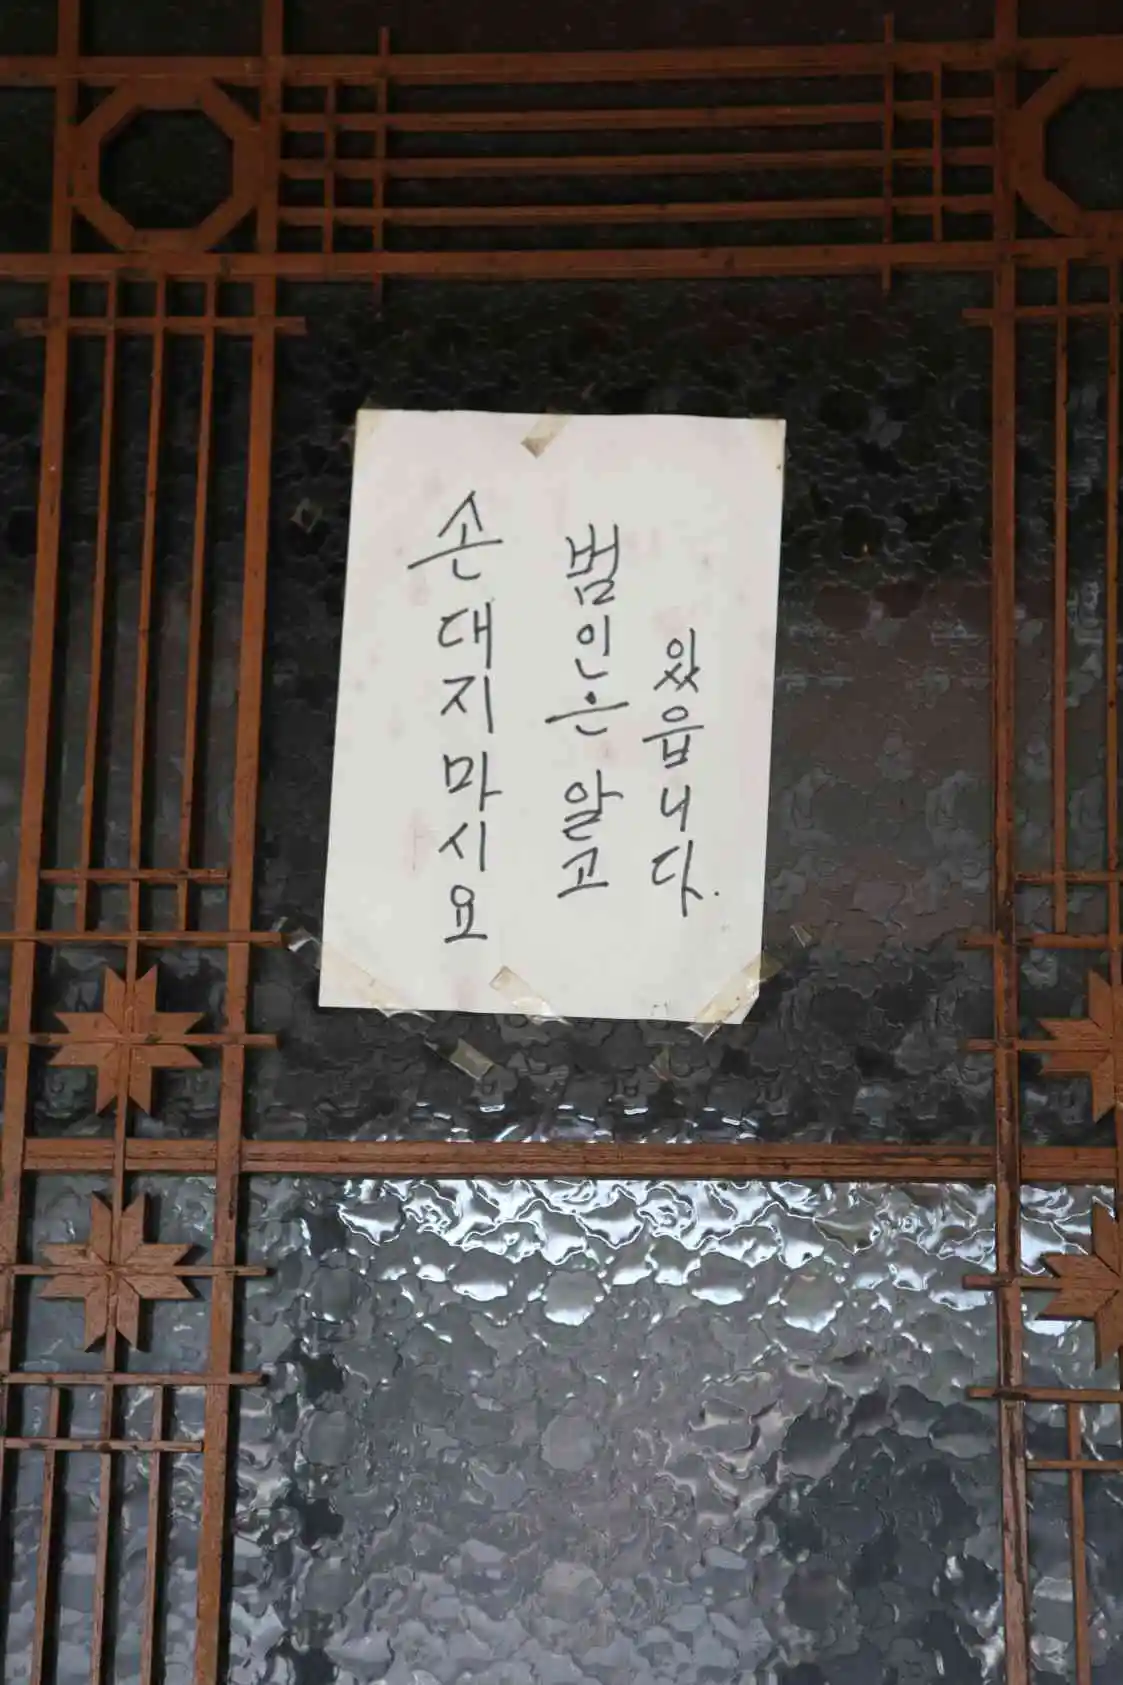 손대지마시요
범인은 알고
있읍니다.